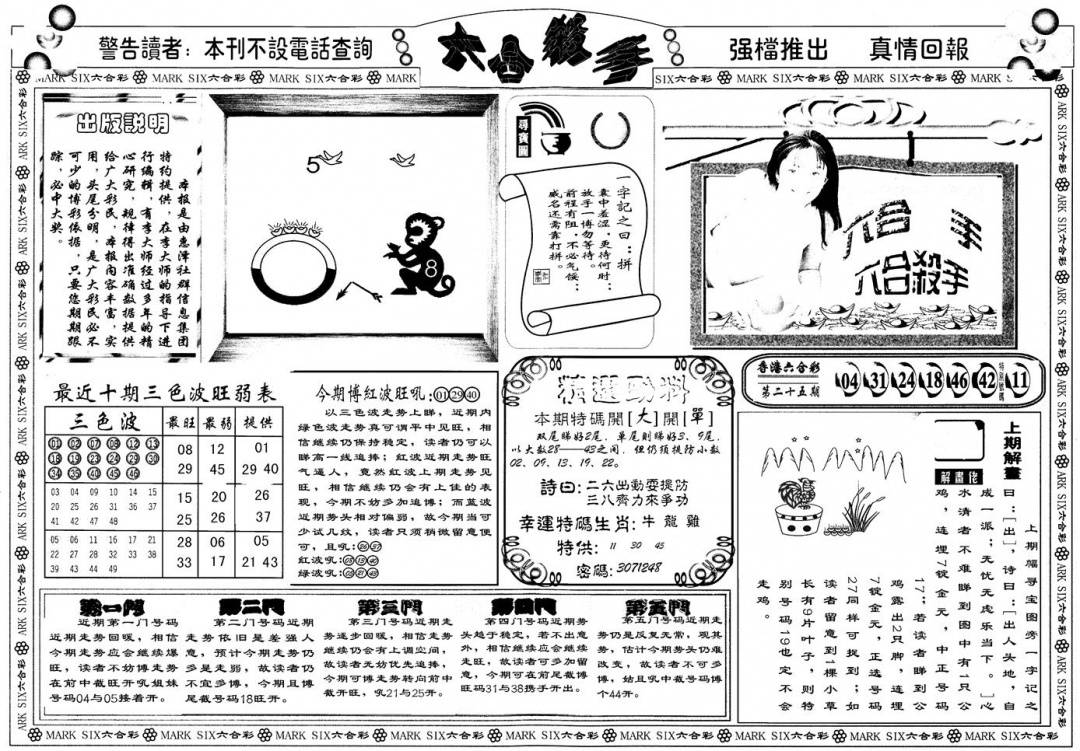 警告讀者：本刊不設電話查詢
六合殺手
强檔推出 真情回報
MARK SIX六合彩 MARK SIX六合彩 MARK SIX六合彩 MARK
SIX六合彩 MARK SIX六合彩 MARK SIX六合彩 MARK SIX六合彩
出版説明
本报是由惠泽社群信息集团
特约提供，在李大师的指导下进
行编辑，有李大师经过多年的精
心研究，规律得出准确数据提供
给广大彩民，本报内容丰富，实
用，头尾分明，是广大彩民必不
可少的博彩依据，只要您期期跟
踪，必中大奖。
5
8
尋寶圖
一字記之曰：拼
囊中羞涩，更待何时；
放手一博勿等待。
前程有阻，不必气馁；
威名还需靠打拼。
六合 手
六合殺手
香港六合彩
第二十五期
04 31 24 18 46 42
特别號碼
11
最近十期三色波旺弱表
三色波 最旺 最弱 提供
01 02 07 08 12 13
18 19 23 24 29 30
34 35 40 45 46
08 12 01
29 45 29 40
03 04 09 10 14 15
20 25 26 31 36 37
41 42 47 48
15 20 26
25 26 37
05 06 11 16 17 21
22 27 28 32 33 38
39 43 44 49
28 06 05
33 17 21 43
今期博紅波旺吼：01 29 40
以三色波走势上睇，近期内
绿色波走势真可谓平中见旺，相
信继续仍保持稳定，读者仍可以
睇高一线追捧；红波近期走势旺
气逼人，竟然红波上期走势见
旺，相信继续仍会有上佳的表
现，今期不妨多加追博；而蓝波
近期势头相对偏弱，故今期当可
少试儿纹，读者只须稍微留意便
可，且吼：26 37
红波吼：
绿波吼：
精選動料
本期特碼開[大]開[單]
双尾睇好2尾，单尾則睇好3、9尾，
以大数28——43之间，但仍须提防小数
02、09、13、19、22。
詩曰：二六出動要提防
三八齊力來爭功
幸運特碼生肖：牛 龍 雞
特供： 11 30 45
密碼：3071248
上期解畫
解畫佬
上期幅寻宝图旁一字记之
曰：［出］，诗曰：［出人头地，自
成一派；无忧无虑乐当下。］心
水清者不难睇到图中有1只公
鸡，连埋7锭金元，中正号码
17；若读者睇到公
鸡露出2只脚，连埋
7锭金元，正选号码
27同样可捉到；如
读者留意到1棵小草
长有9片叶子，则特
别号码19也定不会
走鸡。
第一門
近期第一门号码
近期走势回暖，相信
今期走势应会继续爆
旺，读者不妨博走势
在前中截旺开吼姐妹
号码04与05接着开。
第二門
第二门号码近期
走势依旧是差强人
意，预计今期走势仍
多是走弱，故读者仍
不宜多博，今期且博
尾截号码18旺开。
第三門
第三门号码近期走
势逐步回暖，相信走势
继续仍会有上调空间，
故读者无妨优先追捧，
今期可博走势转向前中
截开旺，吼21与25。
第四門
第四门号码近期势
头趋于稳定，若不出意
外，相信继续应会继续
走旺，故读者可多加留
意，今期可在前尾截博
旺码31与38携手开出。
第五門
第五门号码近期走
势仍是反复无常，观其
势，估计今期势头仍难
改变，故读者不可多
博，姑且吼中截号码博
个44开。
MARK SIX六合彩 MARK SIX六合彩 MARK SIX六合彩 MARK SIX六合彩 MARK SIX六合彩 MARK SIX六合彩 MARK SIX六合彩 MARK SIX六合彩 MARK SIX六合彩